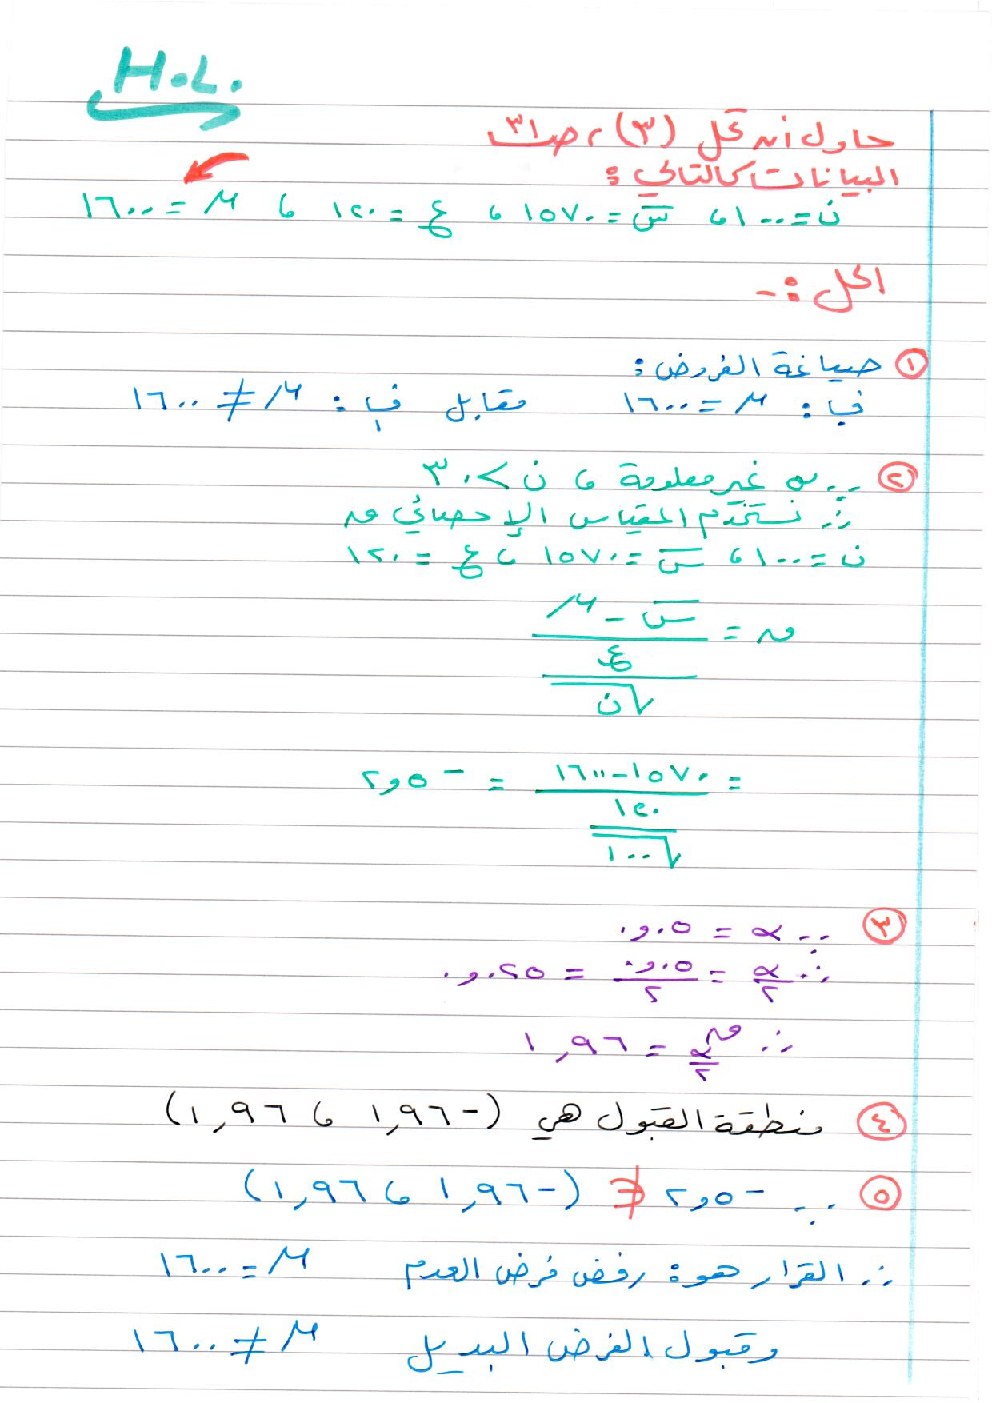 H.L.
حاول أن تحل (٣)، ص ٣١
البيانات كالتالي :
ن = ١٠٠ ، س̄ = ١٥٧٠ ، ع = ١٢٠ ، μ = ١٦٠٠
الحل :-
① صياغة الفروض :
ف. : μ = ١٦٠٠ مقابل ف١ : μ ≠ ١٦٠٠
② ∵ σ غير معلومة ، ن > ٣٠
∴ نستخدم المقياس الإحصائي ن
ن = ١٠٠ ، س̄ = ١٥٧٠ ، ع = ١٢٠
ن = (س̄ - μ) / (ع / √ن)
= (١٥٧٠ - ١٦٠٠) / (١٢٠ / √١٠٠) = -٢,٥
③ ∵ α = ٠,٠٥
∴ α/٢ = ٠,٠٥/٢ = ٠,٠٢٥
∴ ن α/٢ = ١,٩٦
④ منطقة القبول هي (-١,٩٦ ، ١,٩٦)
⑤ ∵ -٢,٥ ∌ (-١,٩٦ ، ١,٩٦)
∴ القرار هو : رفض فرض العدم μ = ١٦٠٠
وقبول الفرض البديل μ ≠ ١٦٠٠